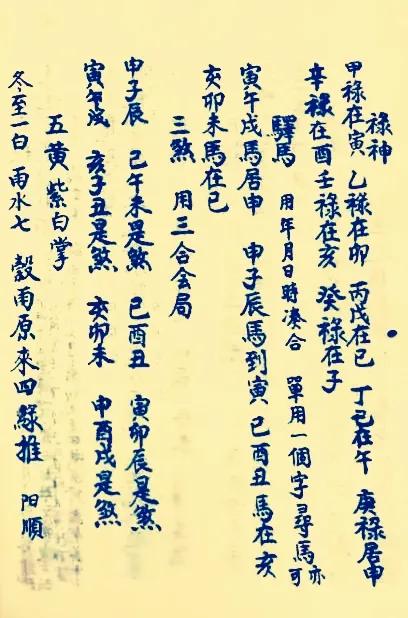 祿神
甲祿在寅 乙祿在卯 丙戊在巳 丁己在午 庚祿居申
辛祿在酉 壬祿在亥 癸祿在子
驛馬 用年月日時湊合 單用一個字尋馬亦可
寅午戌馬居申 申子辰馬到寅 巳酉丑馬在亥
亥卯未馬在巳
三煞 用三合会局
申子辰 巳午未是煞 巳酉丑 寅卯辰是煞
寅午戌 亥子丑是煞 亥卯未 申酉戌是煞
五黃 紫白掌
冬至一白 雨水七 穀雨原來四綠推 阳順